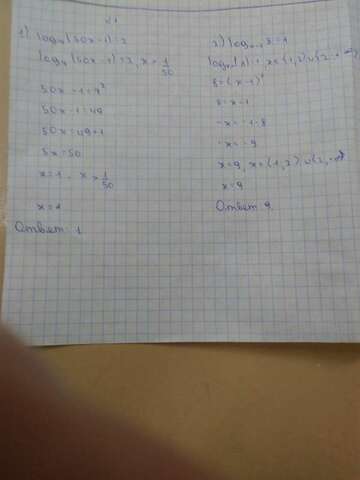 1) log₇(50x-1)=2
log₇(50x-1)=2, x > 1/50
50x-1=7²
50x-1=49
50x=49+1
5x=50
x=1, x > 1/50
x=1
Ответ: 1
2) logₓ₋₁ 8=1
8=(x-1)¹
8=x-1
-x=-1-8
-x=-9
x=9, x=(1,2) ∪(2,+∞)
x=9
Ответ 9